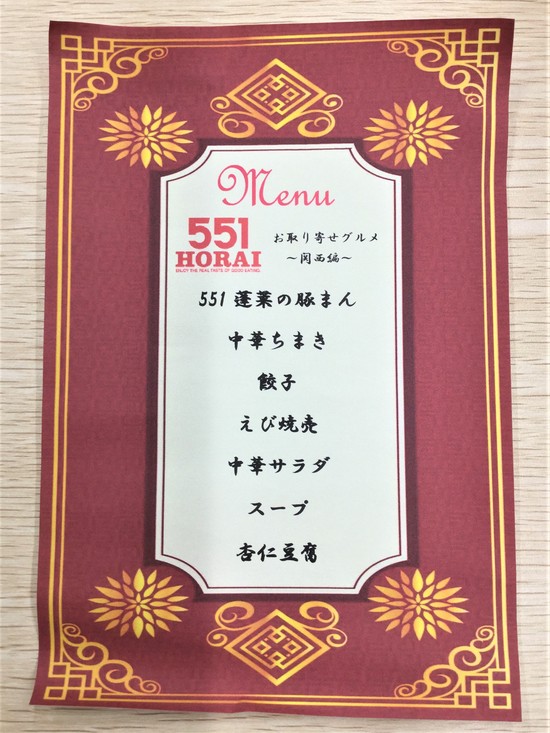 Menu
551
HORAI
ENJOY THE REAL TASTE OF GOOD EATING.
お取り寄せグルメ
～関西編～
551蓬莱の豚まん
中華ちまき
餃子
えび焼売
中華サラダ
スープ
杏仁豆腐